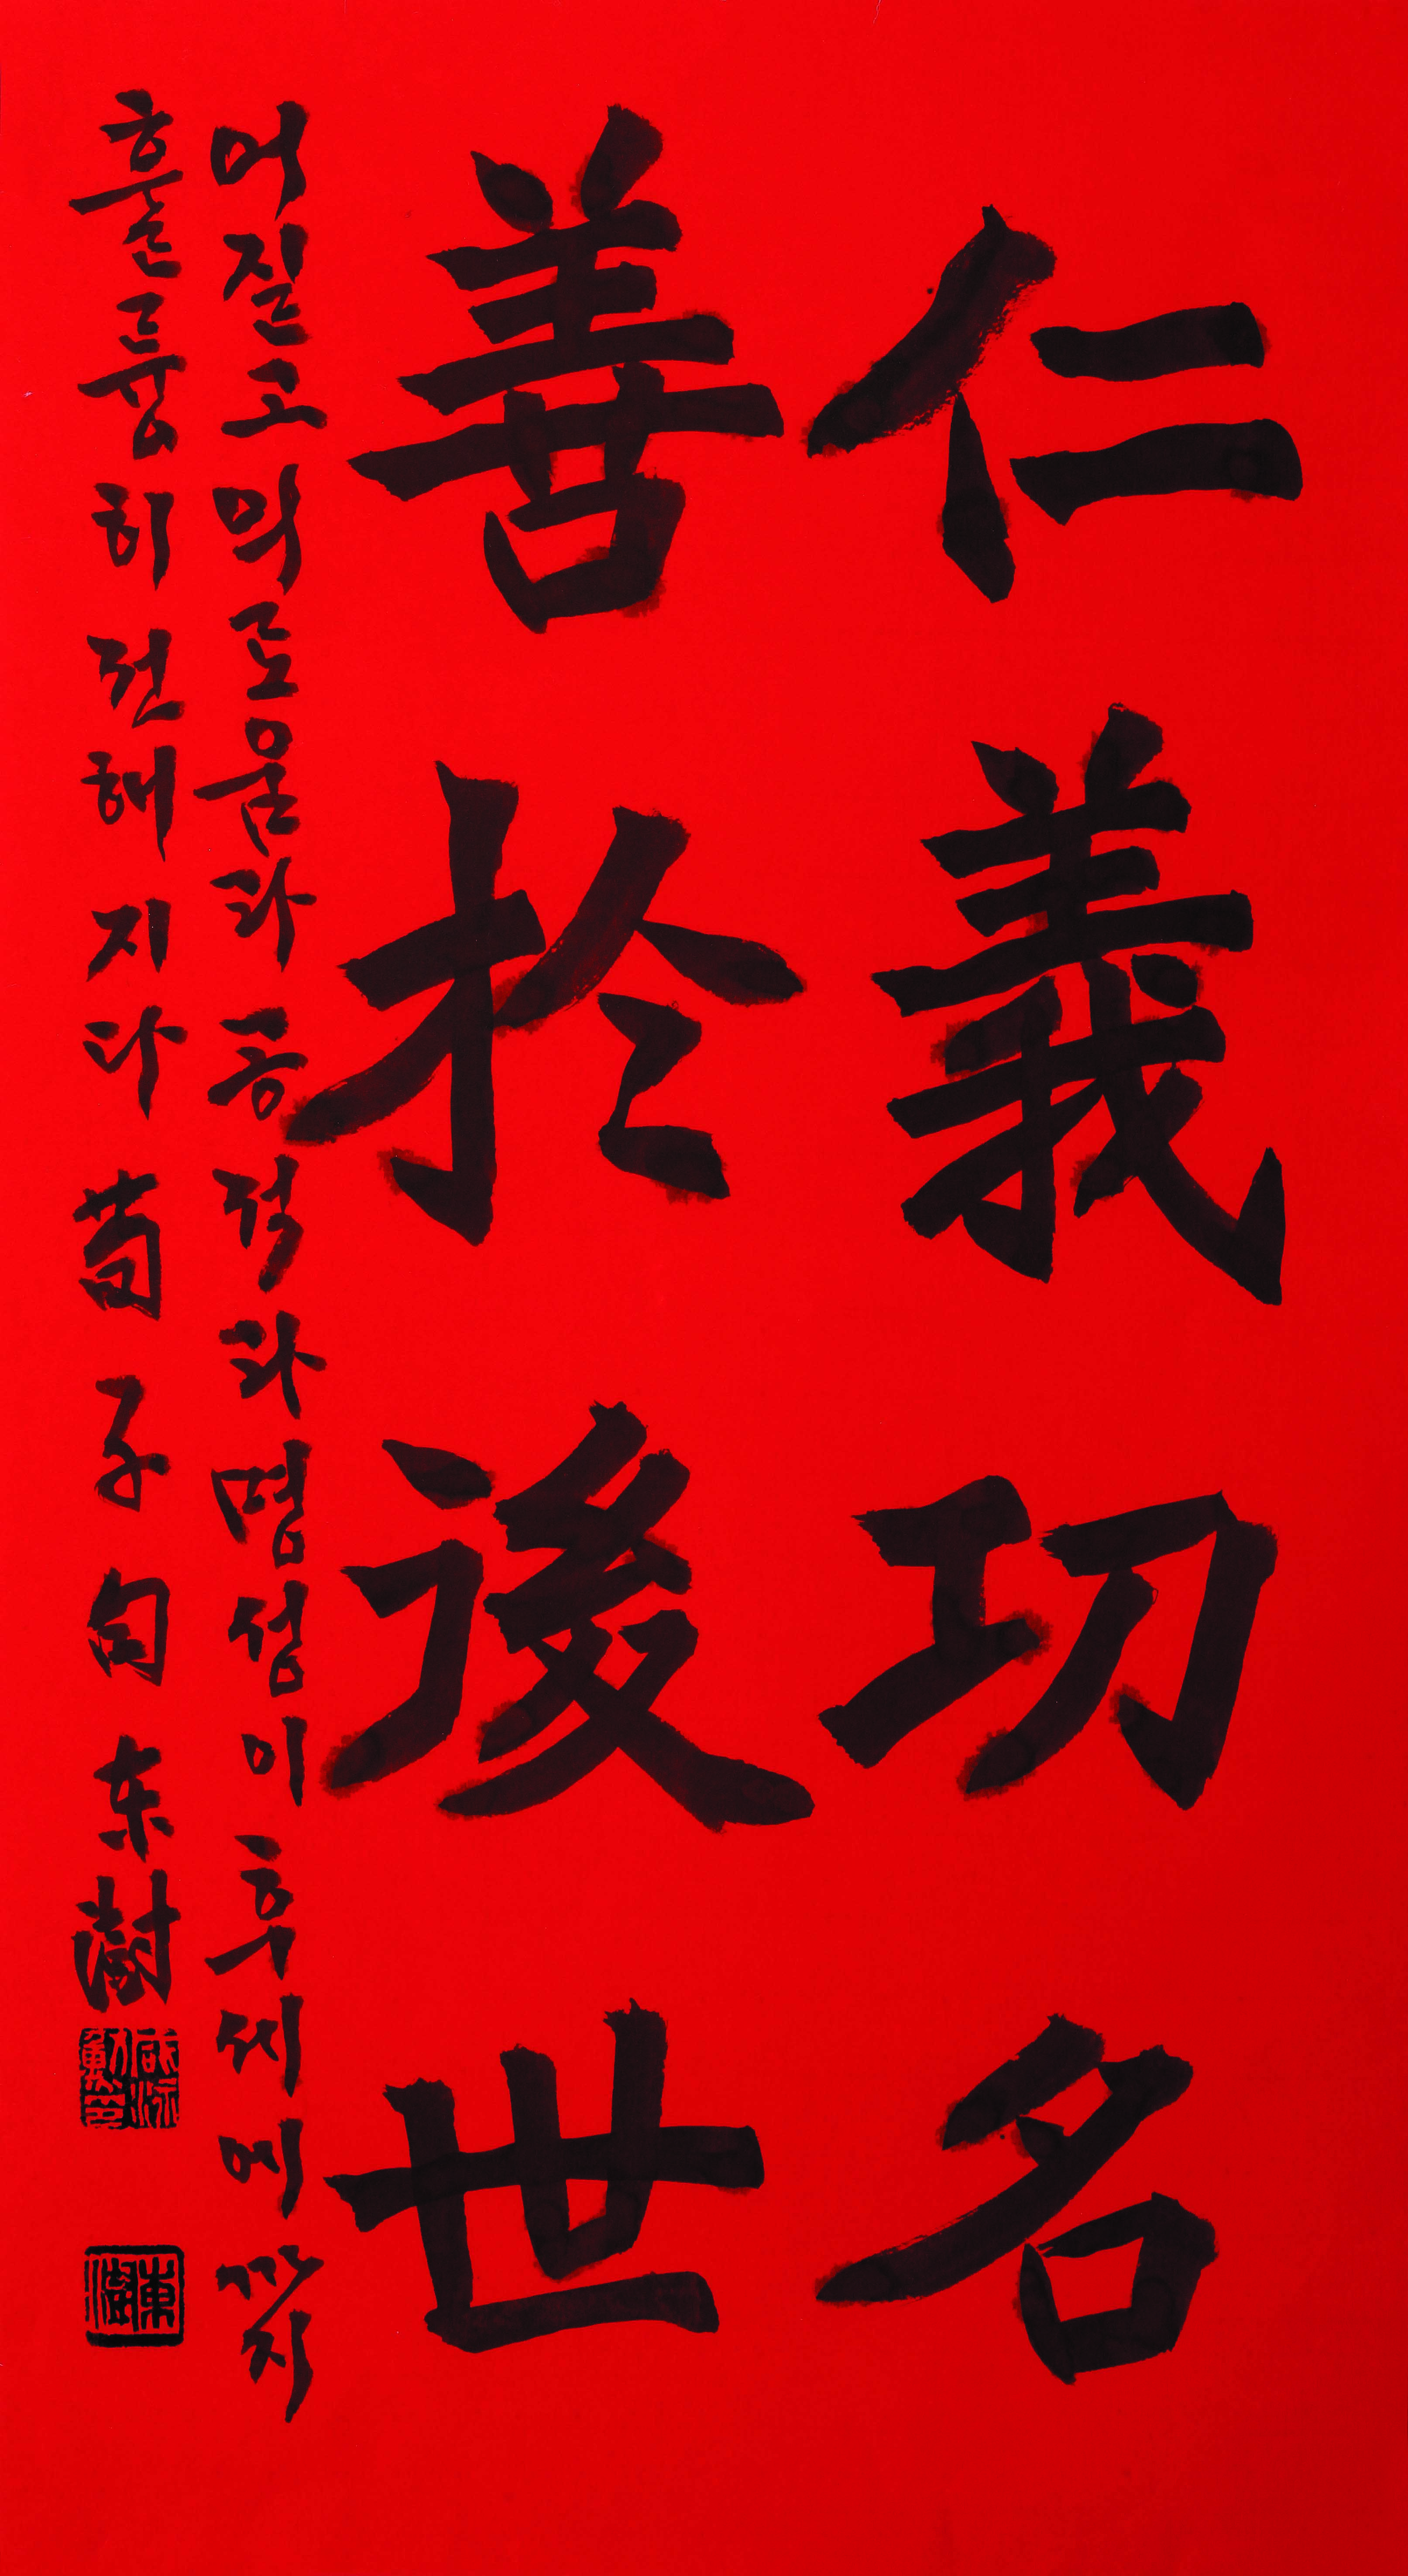 仁義功名
善於後世
어질고 의로움과 공적과 명성이 후세에까지
훌륭히 전해지다 荀子句 东澍
東澍